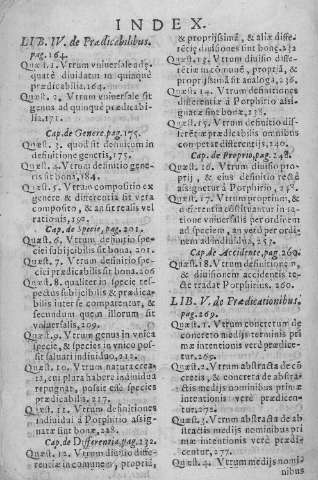 INDEX.
LIB. IV. de Prædicabilibus.
pag. 164.
Quæst. 1. Vtrum vniuersale adæ-
quatè diuidatur in quinque
prædicabilia. 164.
Quæst. 2. Vtrum vniuersale sit
genus ad quinque prædicabi-
lia. 171.
Cap. de Genere. pag. 175.
Quæst. 3. quod sit definitum in
definitione generis, 175.
Quæst. 4. Vtrum definitio gene-
ris sit bona, 184.
Quæst. 5. Vera in compositio ex
genere & differentia sit vera
compositio, & an sit realis vel
rationis, 190.
Cap. de Specie, pag. 201.
Quæst. 6. Vtrum definitio spe-
ciei subijcibilis sit bona. 201.
Quæst. 7. Vtrum definitio spe-
ciei prædicabilis sit bona. 206
Quæst. 8. qualiter in specie res-
pectus subijcibilis & prædica-
bilis inter se comparentur, &
secundum quem illorum sit
vniuersalis, 209.
Quæst. 9. Vtrum genus in vnica
specie, & species in vnico pos-
sit saluari indiuiduo, 212.
Quæst. 10. Vtrum natura crea-
ta, cui plura habere indiuidua
repugnat, possit esse species
prædicabilis, 217.
Quæst. 11. Vtrum definitiones
indiuidui à Porphirio assig-
natæ sint bonæ, 228.
Cap. de Differentia, pag. 232.
Quæst. 12. Vtrum diuisio diffe-
rentiæ in communem, propriã,
& proprijssimã, & aliæ diffe-
rẽtiæ diuisiones sint bonæ. 232
Quæst. 13. Vtrum diuisio diffe-
rẽtiæ in cõmunẽ, propriã, &
proprijssimã sit analoga, 236.
Quæst. 14. Vtrum definitiones
differentiæ à Porphirio assi-
gnatæ sint bonæ, 238.
Quæst. 15. Vtrum definitio dif-
ferẽtiæ prædicabilis omnibus
competat differentijs, 240.
Cap. de Proprio, pag. 248.
Quæst. 16. Vtrum diuisio pro-
prij, & eius definitio rectè
assignetur à Porphirio, 248.
Quæst. 17. Vtrum proprium, &
differentia constituantur in ra-
tione vniuersalis per ordinem
ad speciem, an verò per ordi-
nem ad indiuidua, 257.
Cap. de Accidente, pag. 260.
Quæst. 18. Vtrum definitionẽ, &
diuisionem accidentis rec-
tè tradat Porphirius, 260.
LIB. V. de Prædicationibus.
pag. 269.
Quæst. 1. Vtrum concretum de
concreto medijs terminis pri-
mæ intentionis verè prædice-
tur. 269.
Quæst. 2. Vtrum abstracta de cõ-
cretis, & concreta de abstra-
ctis medijs nominibus primæ
intentionis verè prædicen-
tur, 272.
Quæst. 3. Vtrum abstracta de ab-
stractis medijs nominibus pri-
mæ intentionis verè prædi-
centur, 277.
Quæst. 4. Vtrum medijs nomi-
nibus